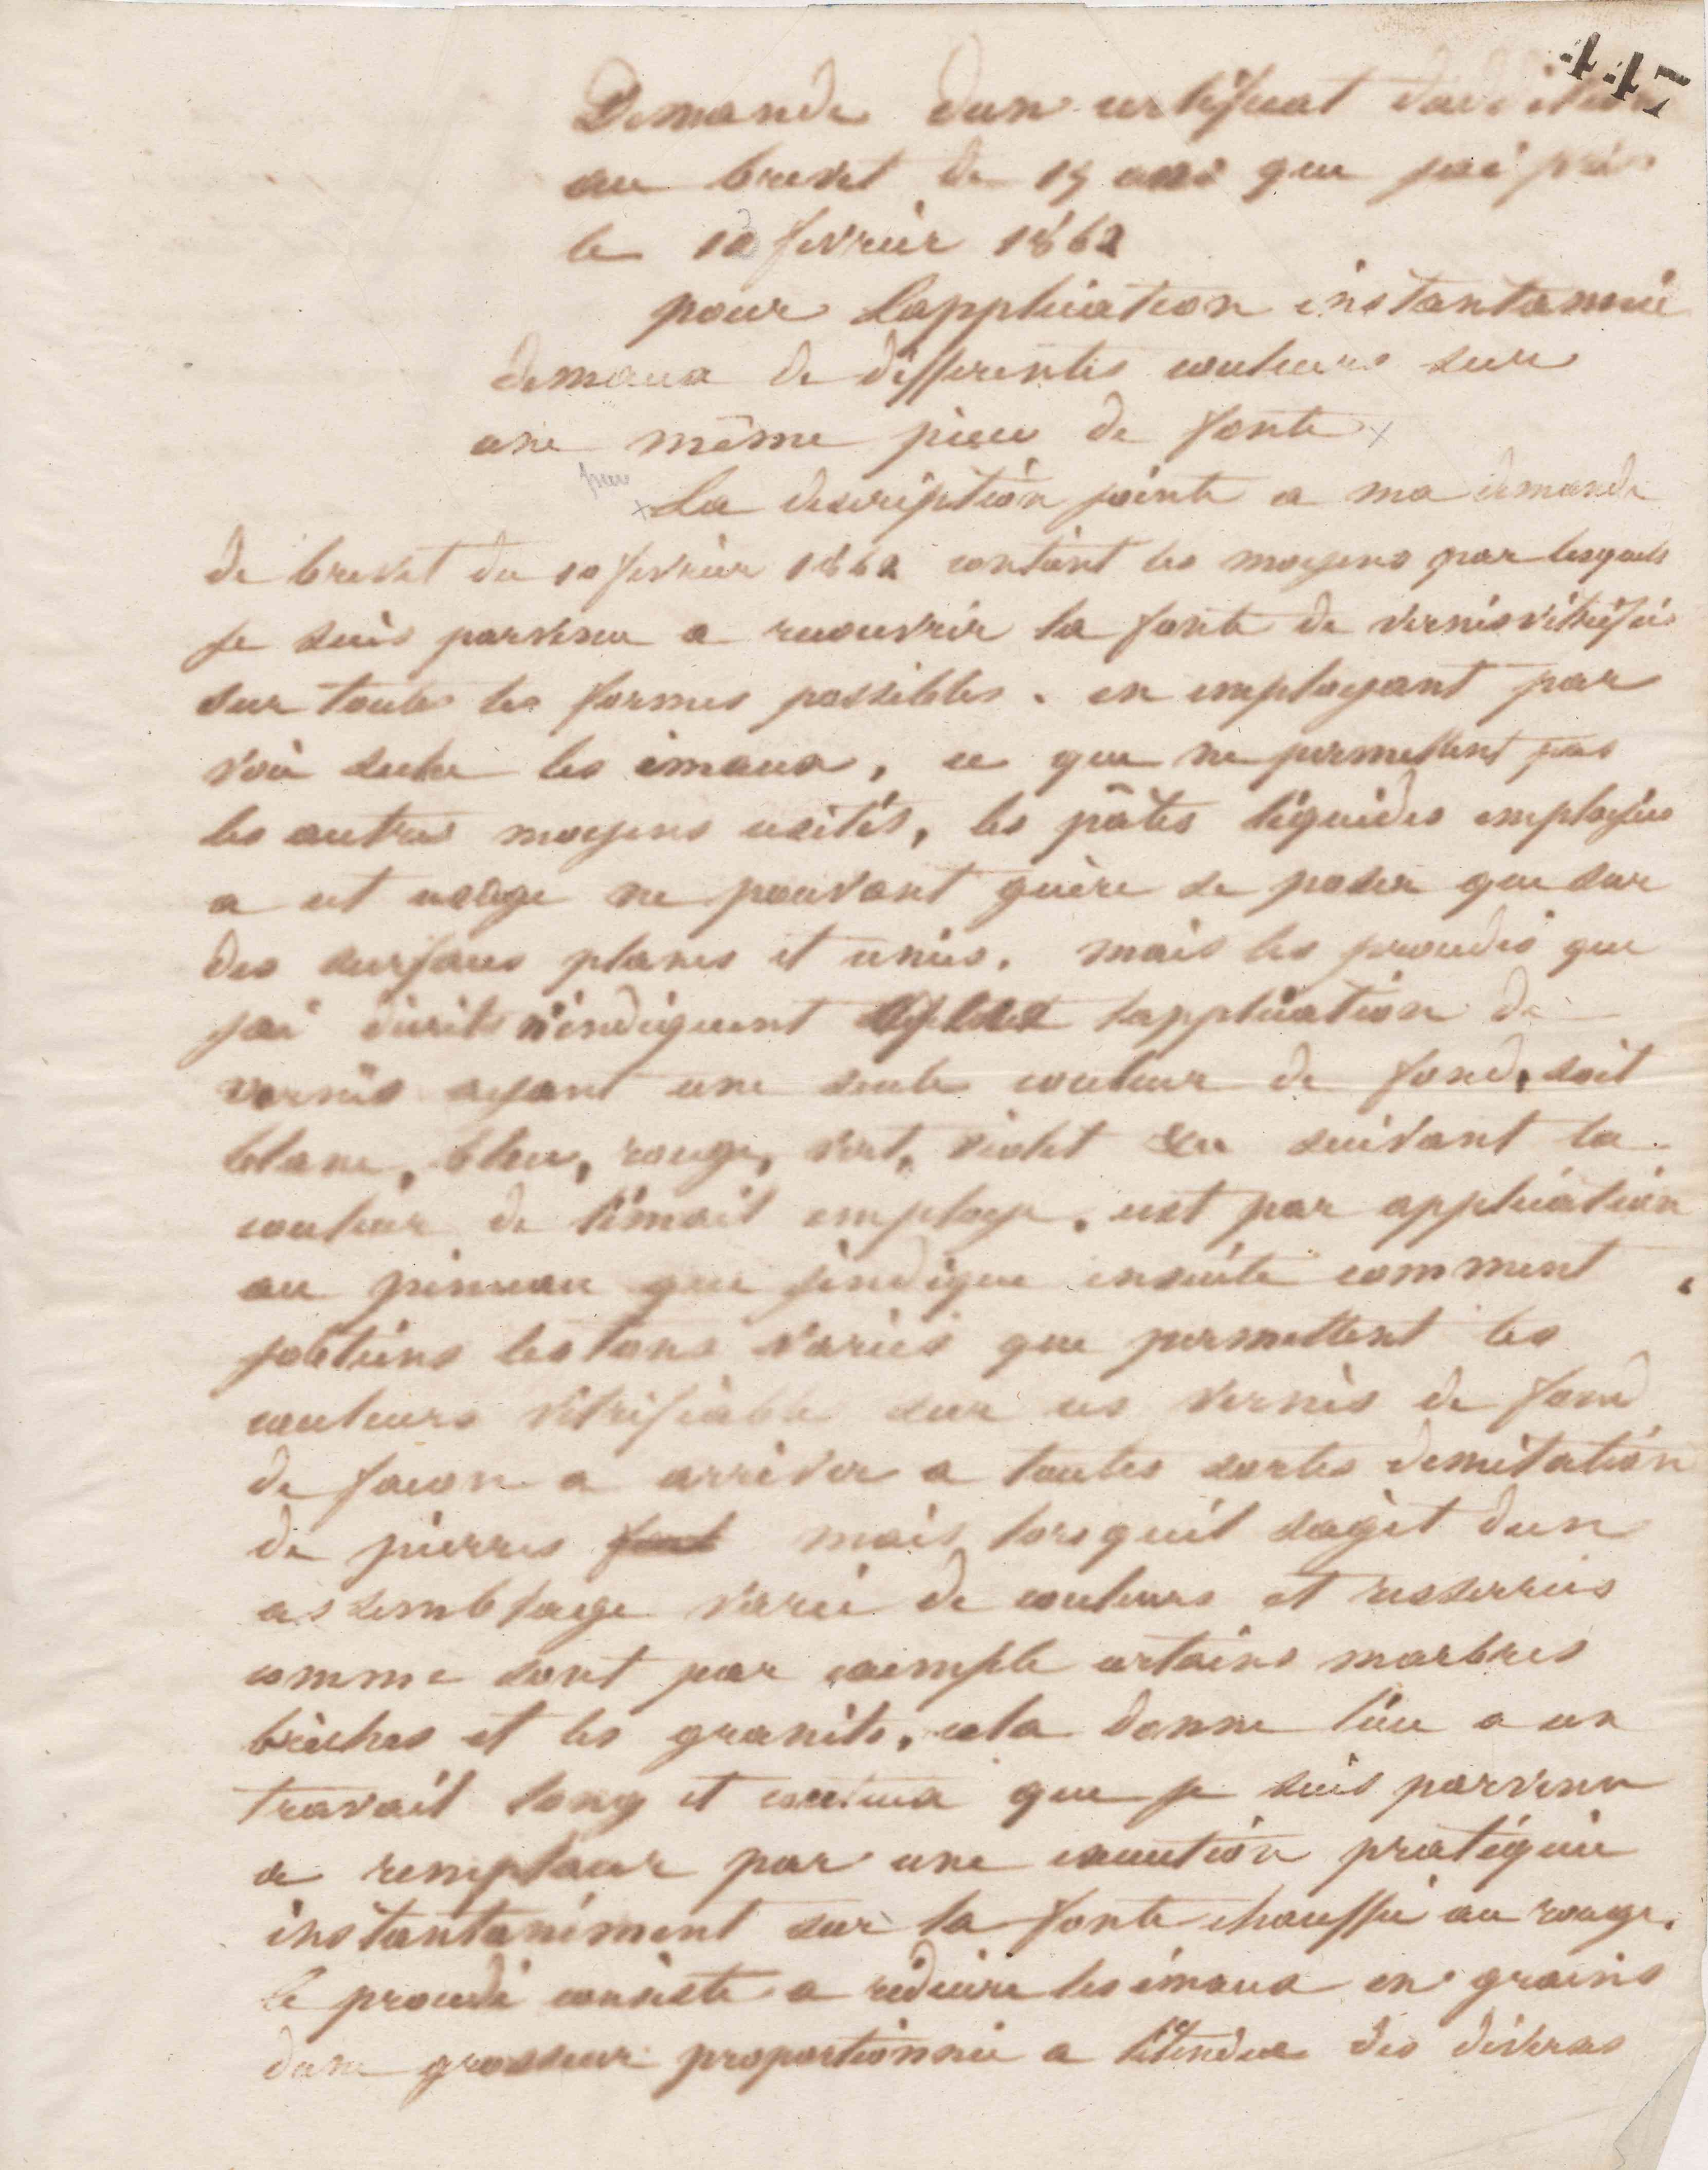 447
Demande dun certificat daddition
au brevet de 15 ans que jai pris
le 10 fevrier 1862
pour Lapplication instantannée
demaux de differentes couleurs sur
une même piece de fonte x
x La description jointe a ma demande
de brevet du 10 fevrier 1862 contient les moyens par lesquels
je suis parvenu a recouvrir la fonte de vernis vitrifiés
sur toutes les formes possibles. en employant par
voie seche les émaux, ce que ne permettent pas
les autres moyens usités, les pâtes liquides employées
a cet usage ne pouvant guère se poser que sur
des surfaces planes et unies. mais les procedés que
jai décrits n'indiquent lapplication de
vernis ayant une seule couleur de fond, soit
blanc, bleu, rouge, vert, violet &a suivant la
couleur de l'émail employé. cest par application
au pinceau que jindique ensuite comment
jobtiens les tons variés que permettent les
couleurs vitrifiable sur ces vernis de fond
de facon a arriver a toutes sortes dimitation
de pierres mais lorsquil sagit dun
assemblage varié de couleurs et resserrées
comme sont par exemple certains marbres
brèches et les granits, cela donne lieu a un
travail long et couteux que je suis parvenu
a remplacer par une execution pratiquée
instantanément sur la fonte chauffée au rouge.
le procedé consiste a réduire les émaux en grains
dune grosseur proportionnée a l'étendue des diverses